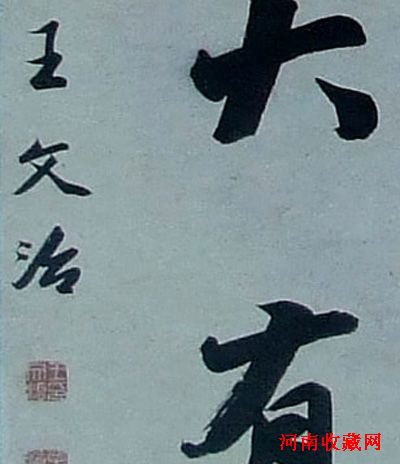 大有
王文治
河南收藏网